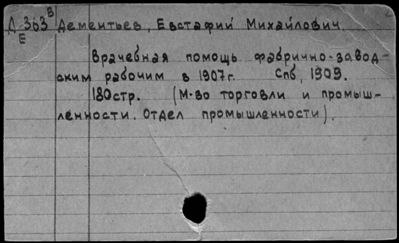 Д 363 В Дементьев, Евстафий Михайлович
Е
Врачебная помощь фабрично-завод-
ским рабочим в 1907г. Спб, 1909.
180стр. (М-во торговли и промыш-
ленности. Отдел промышленности).